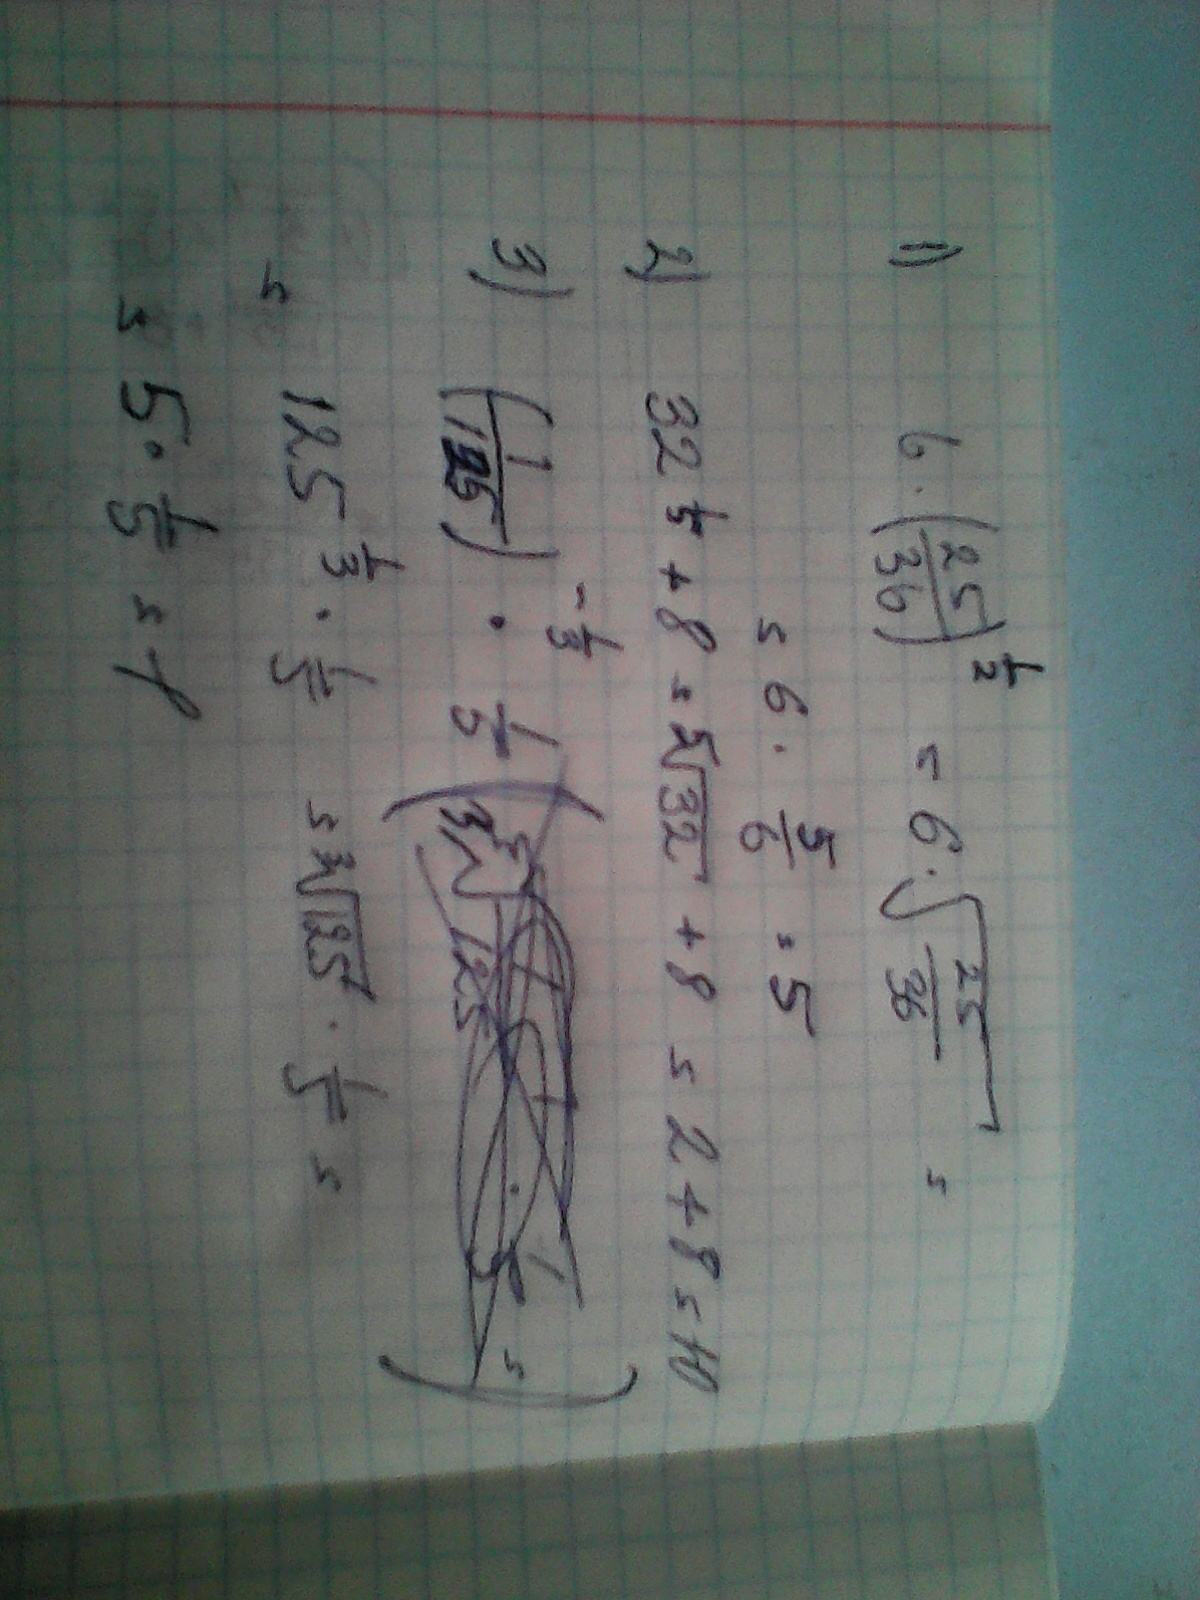 1) 6 · (25/36)^1/2 = 6 · √25/36 =
= 6 · 5/6 = 5
2) 32^1/5 + 8 = ⁵√32 + 8 = 2 + 8 = 10
3) (1/125)^-1/3 · 1/5
= 125^1/3 · 1/5 = ³√125 · 1/5 =
= 5 · 1/5 = 1